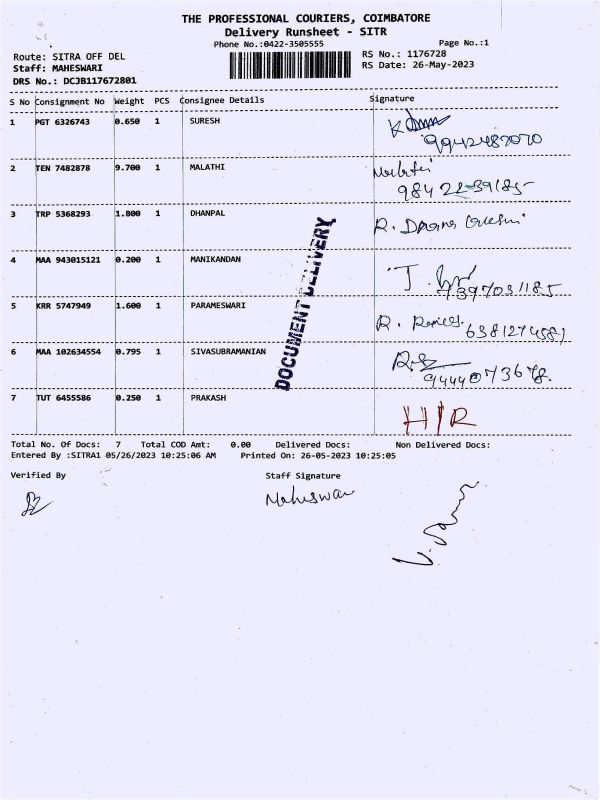 THE PROFESSIONAL COURIERS, COIMBATORE
Delivery Runsheet - SITR
Phone No.:0422-3505555
Page No.:1
Route: SITRA OFF DEL
RS No.: 1176728
Staff: MAHESWARI
RS Date: 26-May-2023
DRS No.: DCJB117672801
S No Consignment No Weight PCS Consignee Details Signature
1 PGT 6326743 0.650 1 SURESH
2 TEN 7482878 9.700 1 MALATHI Malathi
98422-39185
3 TRP 5368293 1.800 1 DHANPAL
4 MAA 943015121 0.200 1 MANIKANDAN
7397031185
5 KRR 5747949 1.600 1 PARAMESWARI
6381274581
6 MAA 102634554 0.795 1 SIVASUBRAMANIAN
9444073678.
7 TUT 6455586 0.250 1 PRAKASH H/R
DOCUMENT DELIVERY
Total No. Of Docs: 7 Total COD Amt: 0.00 Delivered Docs: Non Delivered Docs:
Entered By :SITRA1 05/26/2023 10:25:06 AM Printed On: 26-05-2023 10:25:05
Verified By Staff Signature
Maheswari